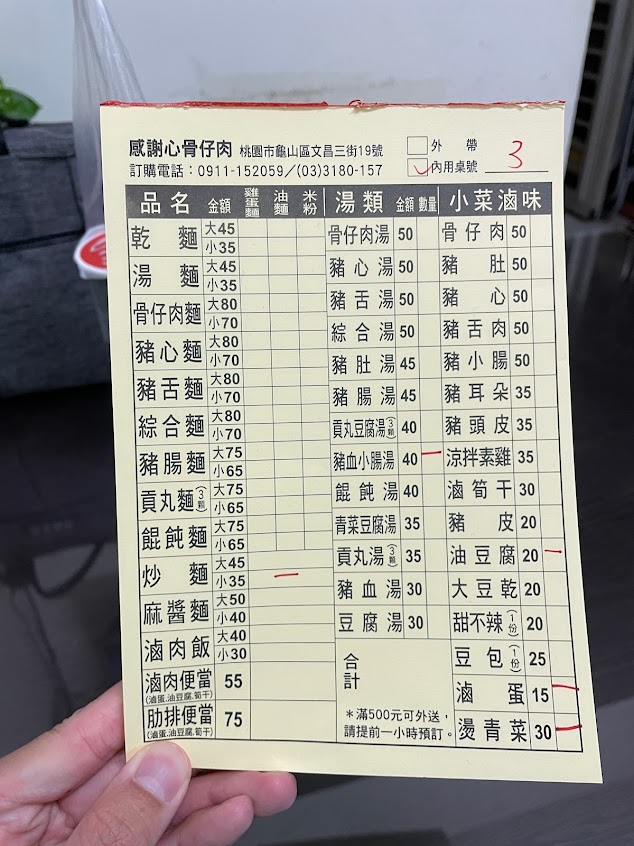 感謝心骨仔肉 桃園市龜山區文昌三街19號
訂購電話：0911-152059／(03)3180-157
外帶
內用桌號 3
品名 金額 雞蛋麵 油麵 米粉 湯類 金額 數量 小菜滷味
乾麵 大45 小35 骨仔肉湯 50 骨仔肉 50
湯麵 大45 小35 豬心湯 50 豬肚 50
骨仔肉麵 大80 小70 豬舌湯 50 豬心 50
豬心麵 大80 小70 綜合湯 50 豬舌肉 50
豬舌麵 大80 小70 豬肚湯 45 豬小腸 50
綜合麵 大80 小70 豬腸湯 45 豬耳朵 35
豬腸麵 大75 小65 貢丸豆腐湯(3顆) 40 豬頭皮 35
貢丸麵(3顆) 大75 小65 豬血小腸湯 40 一 涼拌素雞 35
餛飩麵 大75 小65 餛飩湯 40 滷筍干 30
炒麵 大45 小35 一 青菜豆腐湯 35 豬皮 20
麻醬麵 大50 小40 貢丸湯(3顆) 35 油豆腐 20 一
滷肉飯 大40 小30 豬血湯 30 大豆乾 20
滷肉便當 55 豆腐湯 30 甜不辣(1份) 20
(滷蛋.油豆腐.筍干)
肋排便當 75 合計 豆包(1份) 25
(滷蛋.油豆腐.筍干)
滷蛋 15 一
燙青菜 30 一
＊滿500元可外送，
請提前一小時預訂。